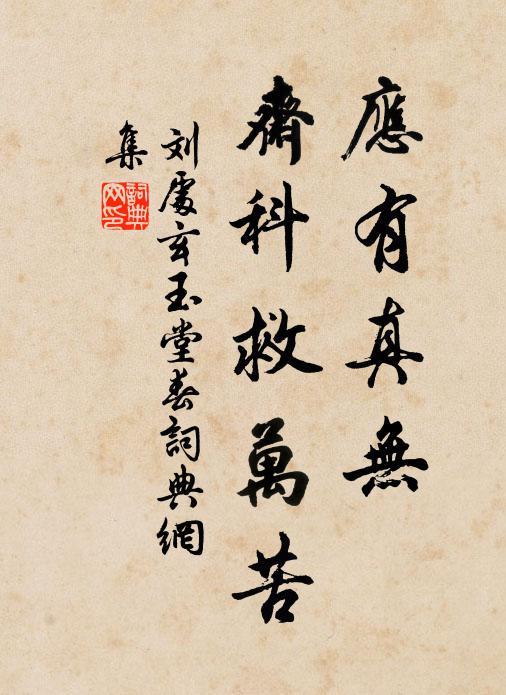 應有真無
齋科救萬苦
刘處玄玉堂春詞典網
集
詞典网印